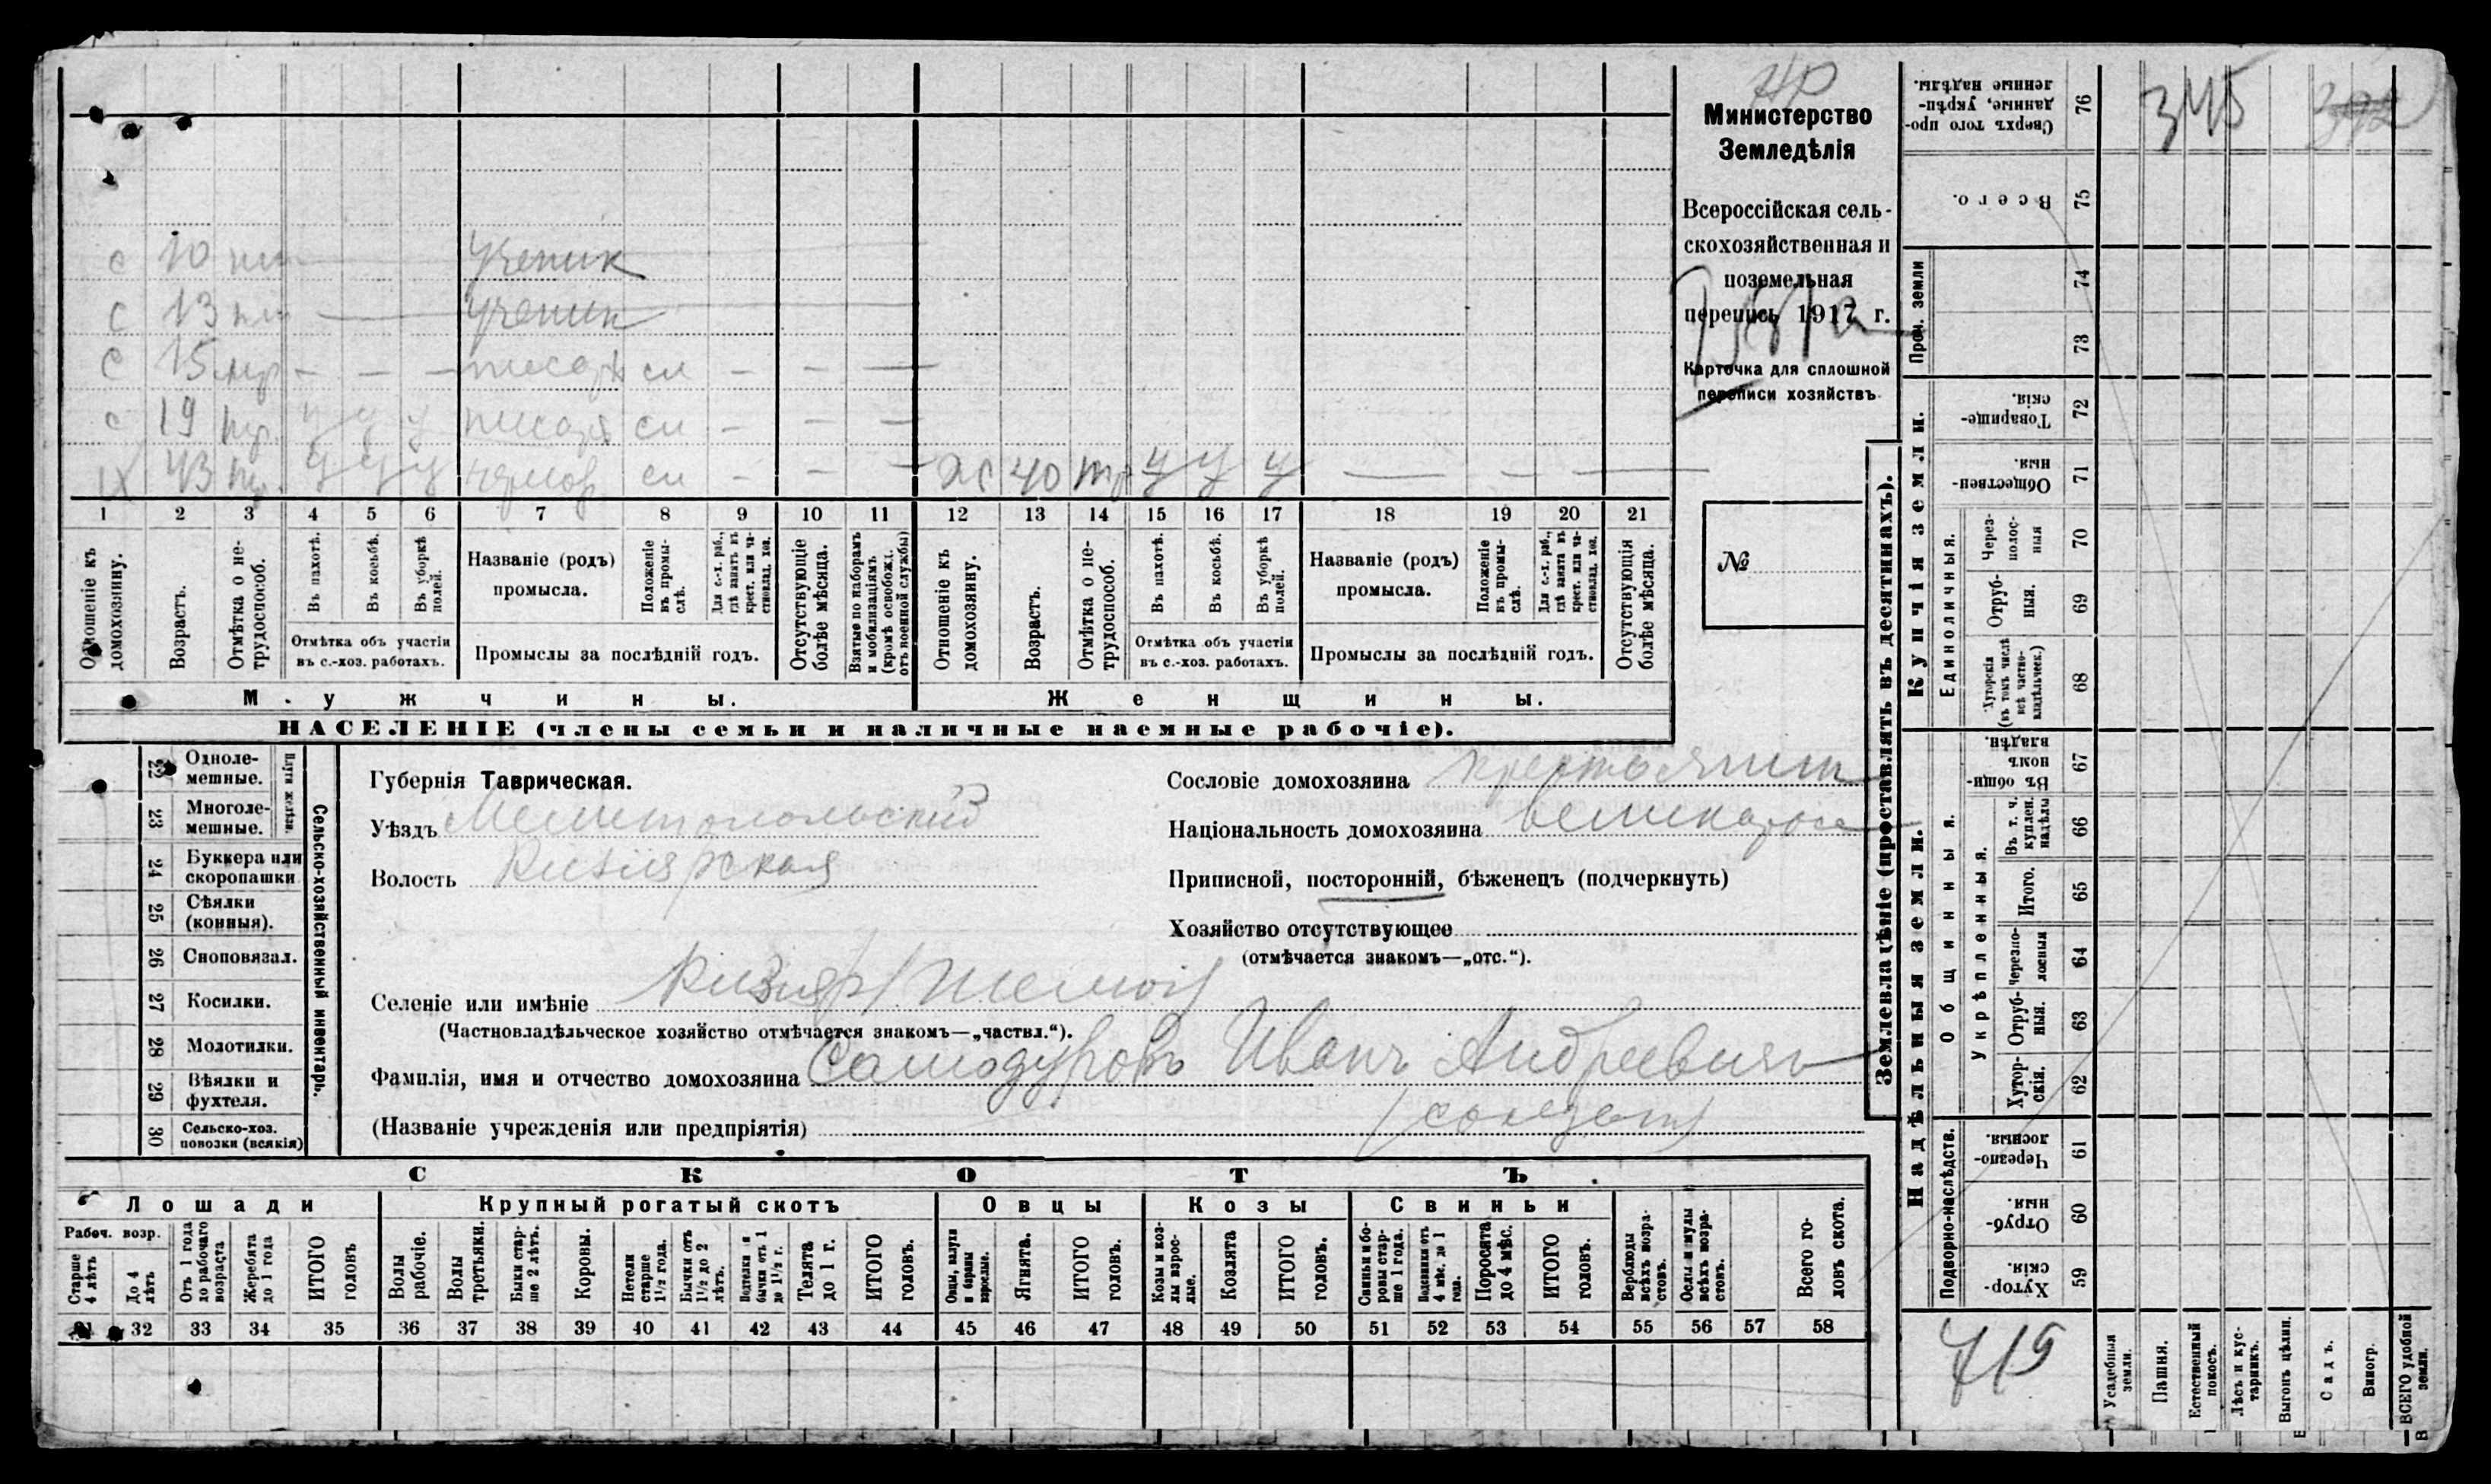 НР
Министерство
Земледѣлія
Всероссійская сель-
скохозяйственная и
поземельная
перепись 1917 г.
Карточка для сплошной
переписи хозяйствъ
№
с 10 ученик
с 13 ученик
с 15 – – – писарь сл – – —
с 19 у у у писарь сл – – –
х 43 у у у сл – – – ж 40 у у у — – —
1 2 3 4 5 6 7 8 9 10 11 12 13 14 15 16 17 18 19 20 21
Отношеніе къ домохозяину.
Возрастъ.
Отмѣтка о не-трудоспособ.
Въ пахотѣ.
Въ косьбѣ.
Въ уборкѣ полей.
Отмѣтка объ участіи
въ с.-хоз. работахъ.
Названіе (родъ)
промысла.
Положеніе въ промы-слѣ.
Для с.-х. раб., гдѣ занятъ въ крест. или ча-стновлад. хоз.
Промыслы за послѣдній годъ.
Отсутствующіе болѣе мѣсяца.
Взятые по наборамъ и мобилизаціямъ (кромѣ освобожд. отъ военной службы)
Отношеніе къ домохозяину.
Возрастъ.
Отмѣтка о не-трудоспособ.
Въ пахотѣ.
Въ косьбѣ.
Въ уборкѣ полей.
Отмѣтка объ участіи
въ с.-хоз. работахъ.
Названіе (родъ)
промысла.
Положеніе въ промы-слѣ.
Для с.-х. раб., гдѣ занята въ крест. или ча-стновлад. хоз.
Промыслы за послѣдній годъ.
Отсутствующія болѣе мѣсяца.
Мужчины.
Женщины.
НАСЕЛЕНІЕ (члены семьи и наличные наемные рабочіе).
22 Одноле-мешные.
23 Многоле-мешные.
Плуги желѣзн.
24 Буккера или скоропашки
25 Сѣялки (конныя).
26 Сноповязал.
27 Косилки.
28 Молотилки.
29 Вѣялки и фухтеля.
30 Сельско-хоз. повозки (всякія)
Сельско-хозяйственный инвентарь.
Губернія Таврическая.
Уѣздъ Мелитопольскій
Волость Кизіярская
Сословіе домохозяина крестьянин
Національность домохозяина великоросс
Приписной, посторонній, бѣженецъ (подчеркнуть)
Хозяйство отсутствующее
(отмѣчается знакомъ—„отс.“).
Селеніе или имѣніе Кизіяр
(Частновладѣльческое хозяйство отмѣчается знакомъ—„частвл.“).
Фамилія, имя и отчество домохозяина Самодуровъ Иванъ Андреевичъ
(солдат)
(Названіе учрежденія или предпріятія)
СКОТЪ.
Лошади
Крупный рогатый скотъ
Овцы
Козы
Свиньи
Рабоч. возр.
Старше 4 лѣтъ
До 4 лѣтъ
Отъ 1 года до рабочаго возраста
Жеребята до 1 года
ИТОГО головъ
Волы рабочіе.
Волы третьяки.
Быки стар-ше 2 лѣтъ.
Коровы.
Нетели старше 1½ года.
Бычки отъ 1½ до 2 лѣтъ.
Нетелки и бычки отъ 1 до 1½ г.
Телята до 1 г.
ИТОГО головъ.
Овцы, валухи и бараны взрослые.
Ягнята.
ИТОГО головъ.
Козы и коз-лы взрос-лые.
Козлята
ИТОГО головъ.
Свиньи и бо-ровы стар-ше 1 года.
Подсвинки отъ 4 мѣс. до 1 года.
Поросята до 4 мѣс.
ИТОГО головъ.
Верблюды всѣхъ возра-стовъ.
Ослы и мулы всѣхъ возра-стовъ.
Всего го-ловъ скота.
31 32 33 34 35 36 37 38 39 40 41 42 43 44 45 46 47 48 49 50 51 52 53 54 55 56 57 58
Землевладѣніе (проставлять въ десятинахъ).
Надѣльныя земли.
Купчія земли.
Проч. земли
Подворно-наслѣдств.
Общинныя.
Укрѣпленныя.
Единоличныя.
76 Сверхъ того про-данные, укрѣп-ленные надѣлы.
345
392
75 Всего.
74
73
72 Товарище-скія.
71 Обществен-ныя.
70 Через-полос-ныя
69 Отруб-ныя.
68 Хуторскія (въ томъ числѣ всѣ частно-владѣльческ.)
67 Въ общин. владѣн.
66 Въ т. ч. куплен. надѣлы
65 Итого.
64 Черезпо-лосныя
63 Отруб-ныя.
62 Хутор-скія.
61 Черезпо-лосныя.
60 Отруб-ныя.
59 Хутор-скія.
715
Усадебная земли.
Пашня.
Естественный покосъ.
Лѣсъ и кус-тарникъ.
Выгонъ цѣлин.
Садъ.
Виногр.
ВСЕГО удобной земли.